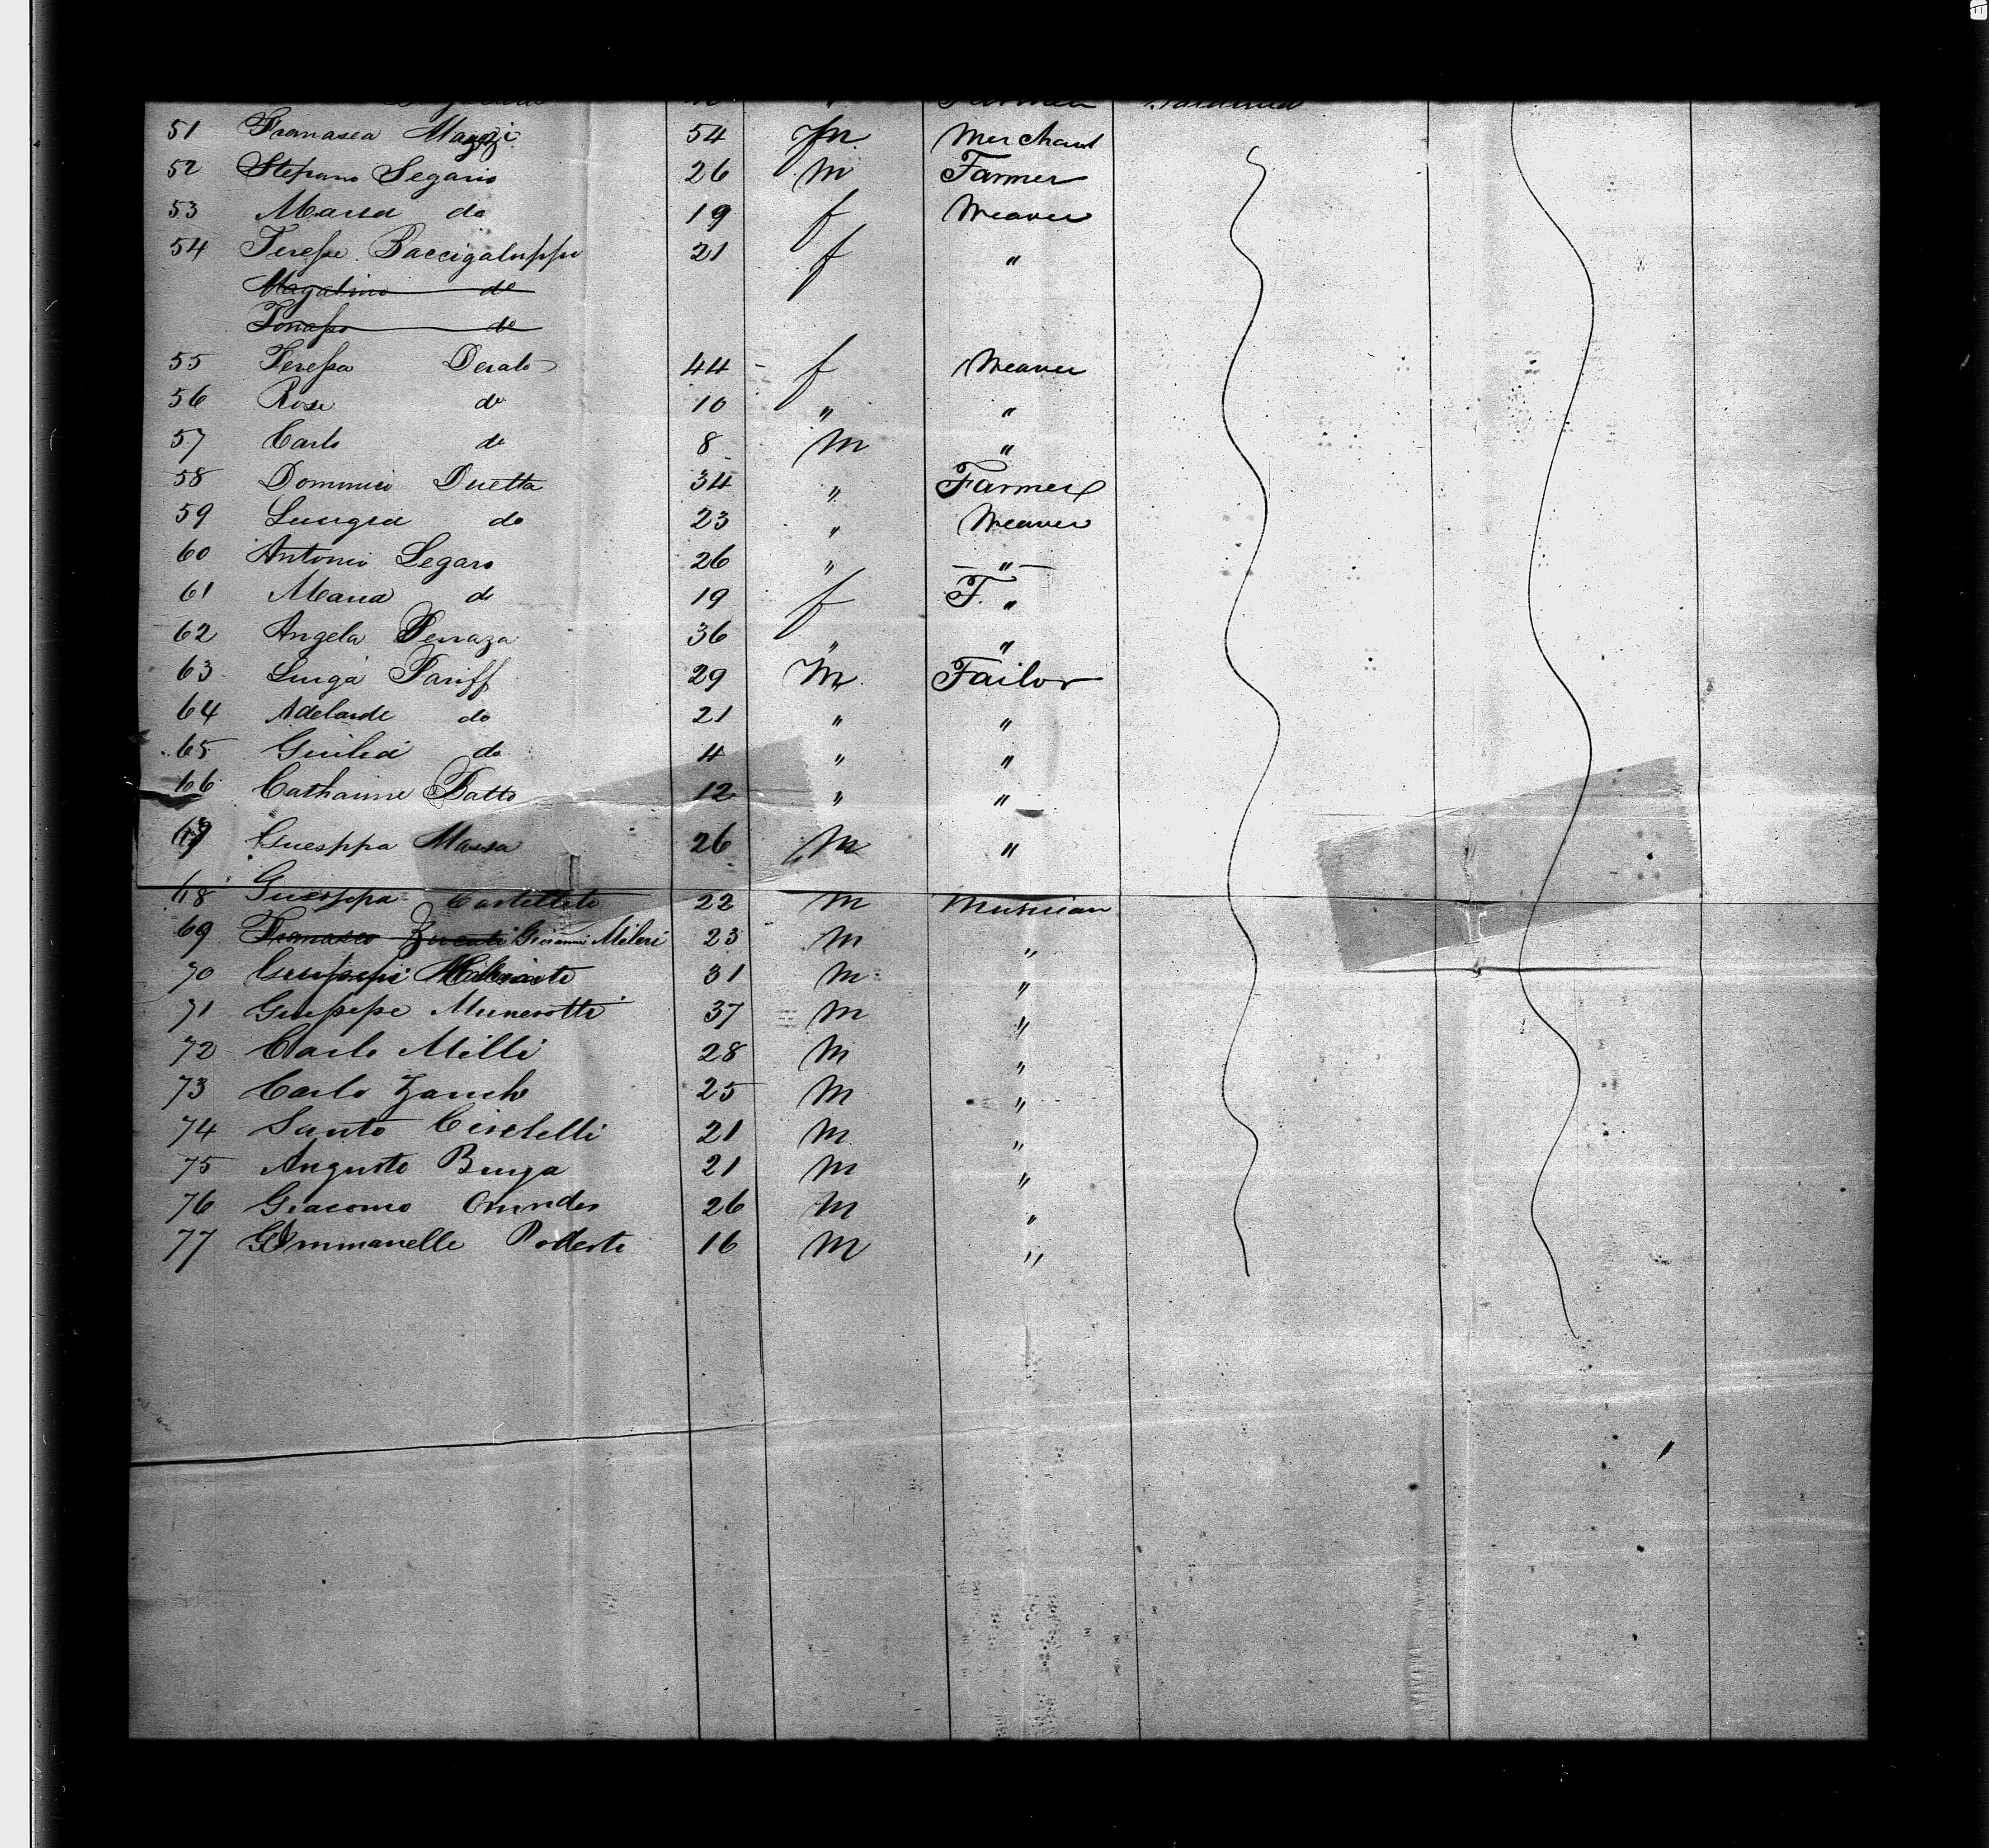 51 Franasca Maggi 54 m Merchant
52 Stefano Segario 26 m Farmer
53 Maria do 19 f Weaver
54 Terese Baccigaluppi 21 f "
Magalino do
Tomaso do
55 Teresa Derato 44 - f Weaver
56 Rose do 10 " "
57 Carlo do 8 M "
58 Dominico Duetta 34 " Farmer
59 Luigia do 23 " Weaver
60 Antonio Segaro 26 " "
61 Maria do 19 f F. "
62 Angela Perraza 36 " "
63 Luiga Pariff 29 M Tailor
64 Adelaide do 21 " "
65 Giulia do 4 " "
66 Catharine Patto 12 " "
67 Guesppa Massa 26 M "
68 Guesppa 22 M Musician
69 Franasco Giovanni Mileri 23 M "
70 31 M "
71 Giusepe Munerotti 37 M "
72 Carlo Milli 28 M "
73 Carlo Zanch 25 M "
74 Santo 21 M "
75 Augusto 21 M "
76 Giacomo 26 M "
77 Emmanelle Poderte 16 M "